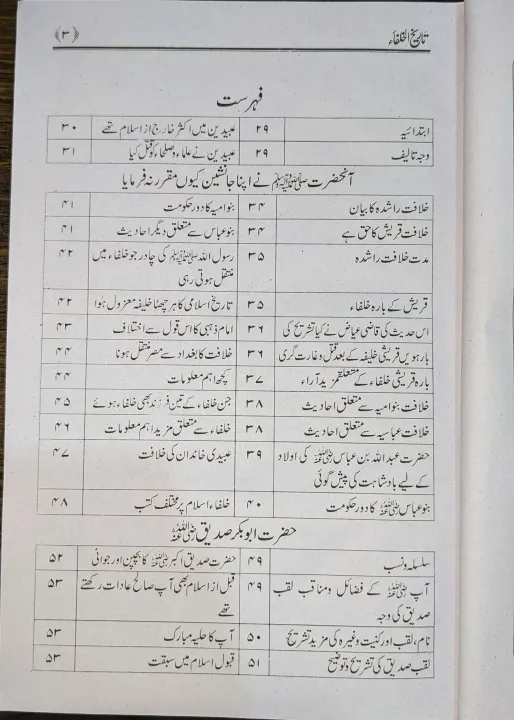 تاریخ الخلفاء ﴿۳﴾
فہرست
ابتدائیہ ۲۹ عبیدین میں اکثر خارج از اسلام تھے ۳۰
وجہ تالیف ۲۹ عبیدین نے علماء و صلحاء کو قتل کیا ۳۱
آنحضرت ﷺ نے اپنا جانشین کیوں مقرر نہ فرمایا
خلافت راشدہ کا بیان ۳۴ بنوامیہ کا دور حکومت ۴۱
خلافت قریش کا حق ہے ۳۴ بنو عباس سے متعلق دیگر احادیث ۴۱
مدت خلافت راشدہ ۳۵ رسول اللہ ﷺ کی چادر جو خلفاء میں ۴۲
منتقل ہوتی رہی
قریش کے بارہ خلفاء ۳۵ تاریخ اسلامی کا ہر چھٹا خلیفہ معزول ہوا ۴۲
اس حدیث کی قاضی عیاض نے کیا تشریح کی ۳۶ امام ذہبی کا اس قول سے اختلاف ۴۳
بارہویں قریشی خلیفہ کے بعد قتل و غارت گری ۳۶ خلافت کا بغداد سے مصر منتقل ہونا ۴۴
بارہ قریشی خلفاء کے متعلق مزید آراء ۳۷ کچھ اہم معلومات ۴۴
خلافت بنوامیہ سے متعلق احادیث ۳۸ جن خلفاء کے تین فرزند بھی خلفاء ہوئے ۴۵
خلافت عباسیہ سے متعلق احادیث ۳۸ خلفاء سے متعلق مزید اہم معلومات ۴۶
حضرت عبداللہ بن عباس رضی اللہ عنہ کی اولاد ۳۹ عبیدی خاندان کی خلافت ۴۷
کے لیے بادشاہت کی پیش گوئی
بنو عباس رضی اللہ عنہ کا دور حکومت ۴۰ خلفاء اسلام پر مختلف کتب ۴۸
حضرت ابوبکر صدیق رضی اللہ عنہ
سلسلہ و نسب ۴۹ حضرت صدیق اکبر رضی اللہ عنہ کا بچپن اور جوانی ۵۲
آپ رضی اللہ عنہ کے فضائل و مناقب لقب ۴۹ قبل از اسلام بھی آپ صالح عادات رکھتے ۵۳
صدیق کی وجہ تھے
نام، لقب اور کنیت وغیرہ کی مزید تشریح ۵۰ آپ کا حلیہ مبارک ۵۳
لقب صدیق کی تشریح و توضیح ۵۱ قبول اسلام میں سبقت ۵۳